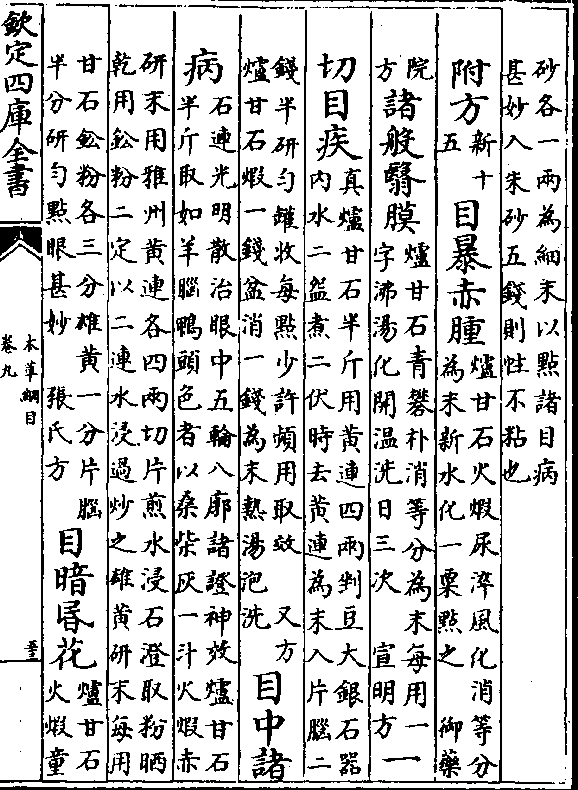 砂各一兩為細末以點諸目病
甚妙入朱砂五錢則性不粘也
附方
新十
五
目暴赤腫
爐甘石火煆尿淬風化消等分
為末新水化一粟點之　御藥
院
方
諸般翳膜
爐甘石青礬朴消等分為末每用一
字沸湯化開温洗日三次　宣明方
一
切目疾
真爐甘石半斤用黄連四兩剉豆大銀石器
内水二盌煮二伏時去黄連為末入片腦二
錢半研勻罐收每點少許頻用取效　又方
爐甘石煆一錢盆消一錢為末熱湯泡洗
目中諸
病
石連光明散治眼中五輪八廓諸證神效爐甘石
半斤取如羊腦鴨頭色者以桑柴灰一斗火煆赤
研末用雅州黄連各四兩切片煎水浸石澄取粉晒
乾用鈆粉二定以二連水浸過炒之雄黄研末每用
甘石鈆粉各三分雄黄一分片腦
半分研勻點眼甚妙　張氏方
目暗昬花
爐甘石
火煆童
欽定四庫全書
本草綱目
卷九